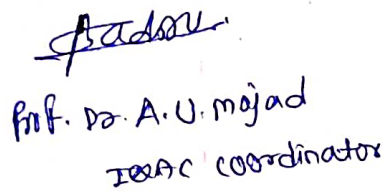 Prof. Dr. A. U. Mojad
IQAC Coordinator